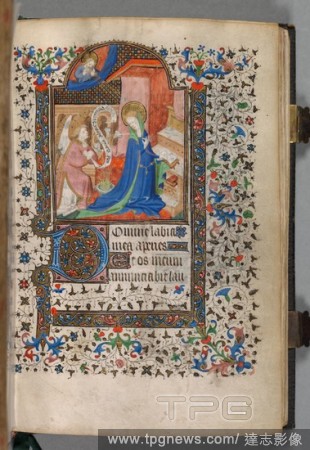 Domine labia
mea aperies
Et os meum
annunciabit lau
TPG
www.tpgnews.com/達志影像